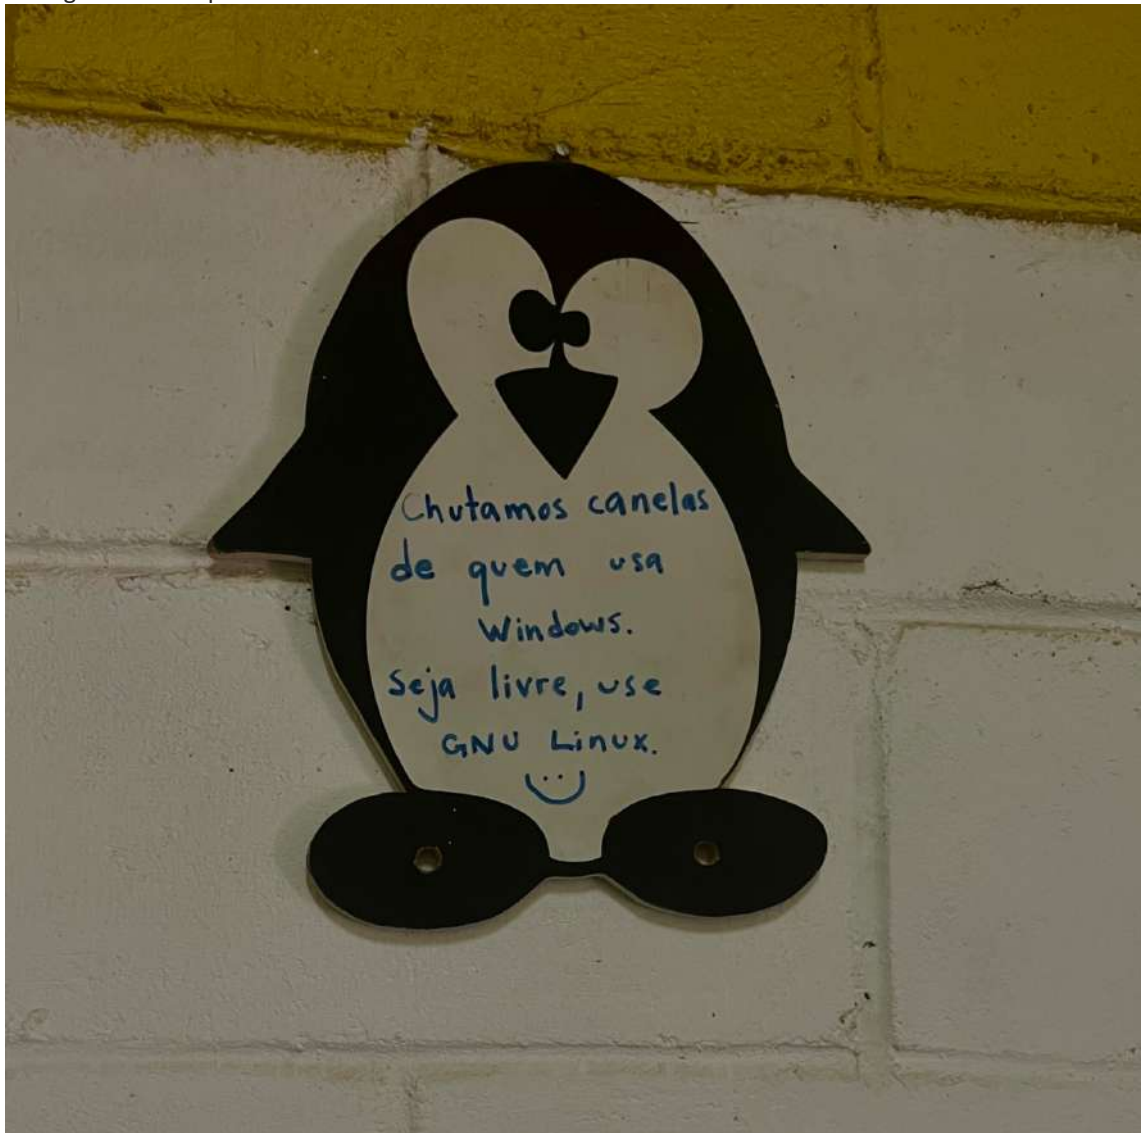 Chutamos canelas
de quem usa
Windows.
Seja livre, use
GNU Linux.